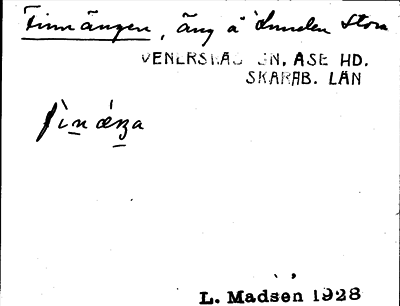 Finnängen, äng å Lunden Stora
VENERSNÄS SN, ÅSE HD.
SKARAB. LÄN
L. Madsen 1928